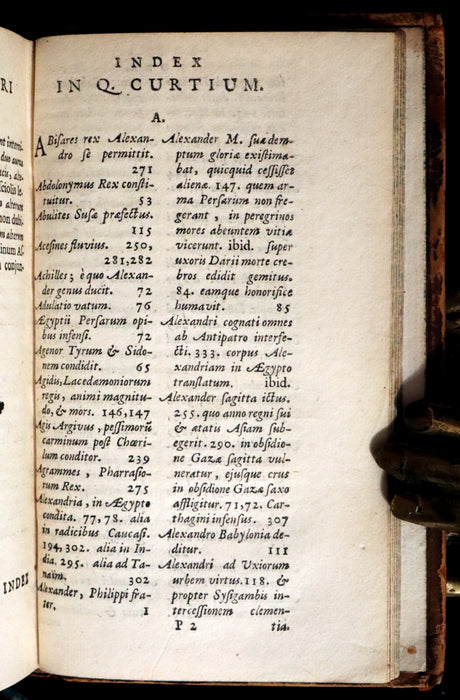 INDEX
IN Q. CURTIUM.
A.
ABisares rex Alexan-
dro se permittit.
271
Abdolonymus Rex consti-
tuitur. 53
Abulites Susæ præfectus.
115
Acesines fluvius. 250,
281,282
Achilles; è quo Alexan-
der genus ducit. 72
Adulatio vatum. 76
Ægyptii Persarum opi-
bus infensi. 72
Agenor Tyrum & Sido-
nem condidit. 65
Agidis, Lacedæmoniorum
regis, animi magnitu-
do, & mors. 146,147
Agis Argivus, pessimorū
carminum post Chœri-
lum conditor. 239
Agrammes, Pharrasio-
rum Rex. 275
Alexandria, in Ægypto
condita. 77, 78. alia
in radicibus Caucasi.
194, 302. alia in In-
dia. 295. alia ad Ta-
naim. 302
Alexander, Philippi fra-
ter. 1
Alexander M. suæ dem-
ptum gloriæ existima-
bat, quicquid cessisset
alienæ. 147. quem ar-
ma Persarum non fre-
gerant, in peregrinos
mores abeuntem vitia
vicerunt. ibid. super
uxoris Darii morte cre-
bros edidit gemitus.
84. eamque honorifice
humavit. 85
Alexandri cognati omnes
ab Antipatro interfe-
cti. 333. corpus Ale-
xandriam in Ægypto
translatum. ibid.
Alexander sagitta ictus.
255. quo anno regni sui
& ætatis Asiam sub-
egerit. 290. in obsidio-
ne Gazæ sagitta vul-
neratur, ejusque crus
in obsidione Gazæ saxo
affligitur. 71,72. Car-
thagini infensus. 307
Alexandro Babylonia de-
ditur. 111
Alexandri ad Uxiorum
urbem virtus. 118. &
propter Sysigambis in-
tercessionem clemen-
P 2 tia.
RI
INDEX